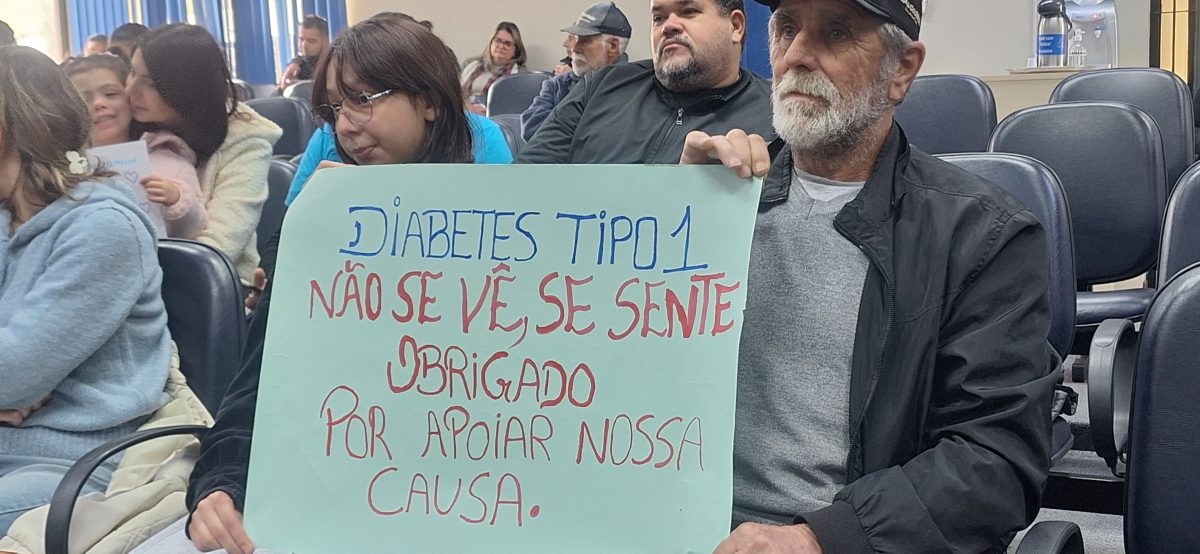 DIABETES TIPO 1
NÃO SE VÊ, SE SENTE
OBRIGADO
POR APOIAR NOSSA
CAUSA.